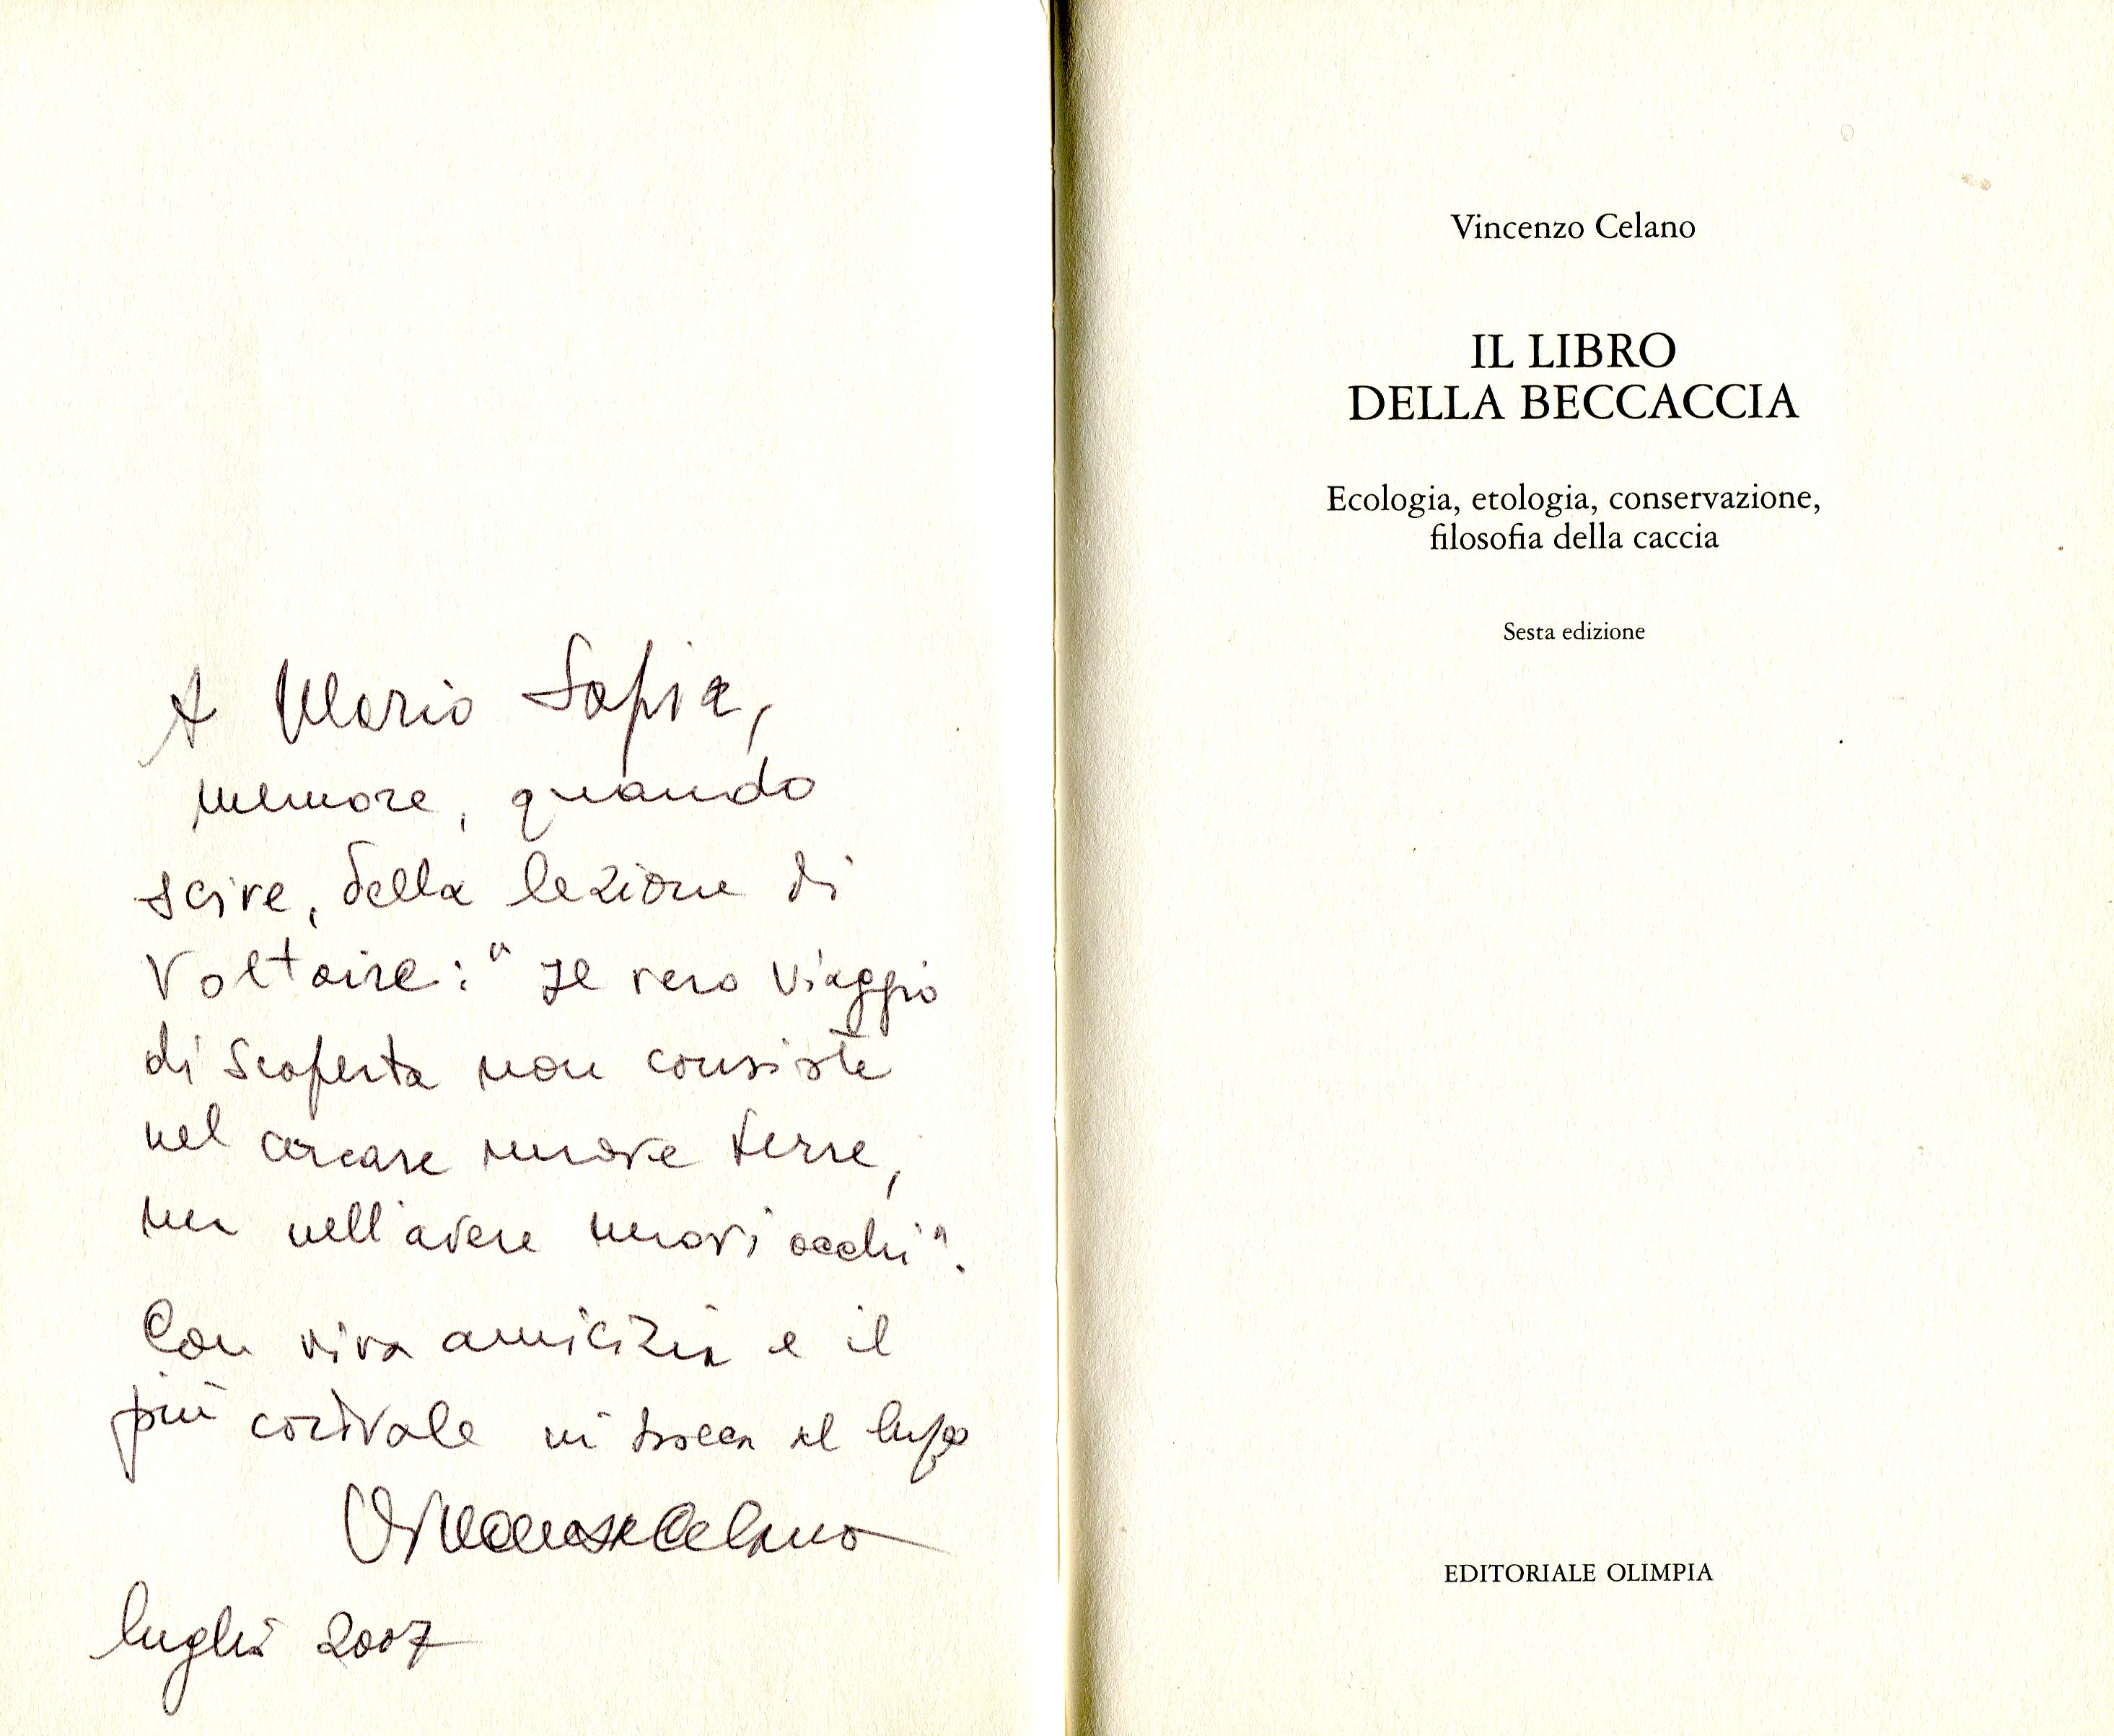 A Mario Sapia,
memore, quando
scive, della lezione di
Voltaire: "Il vero viaggio
di scoperta non consiste
nel cercare nuove terre,
ma nell'avere nuovi occhi".
Con viva amicizia e il
più cordiale in bocca al lupo
Vincenzo Celano
luglio 2007
Vincenzo Celano
IL LIBRO
DELLA BECCACCIA
Ecologia, etologia, conservazione,
filosofia della caccia
Sesta edizione
EDITORIALE OLIMPIA